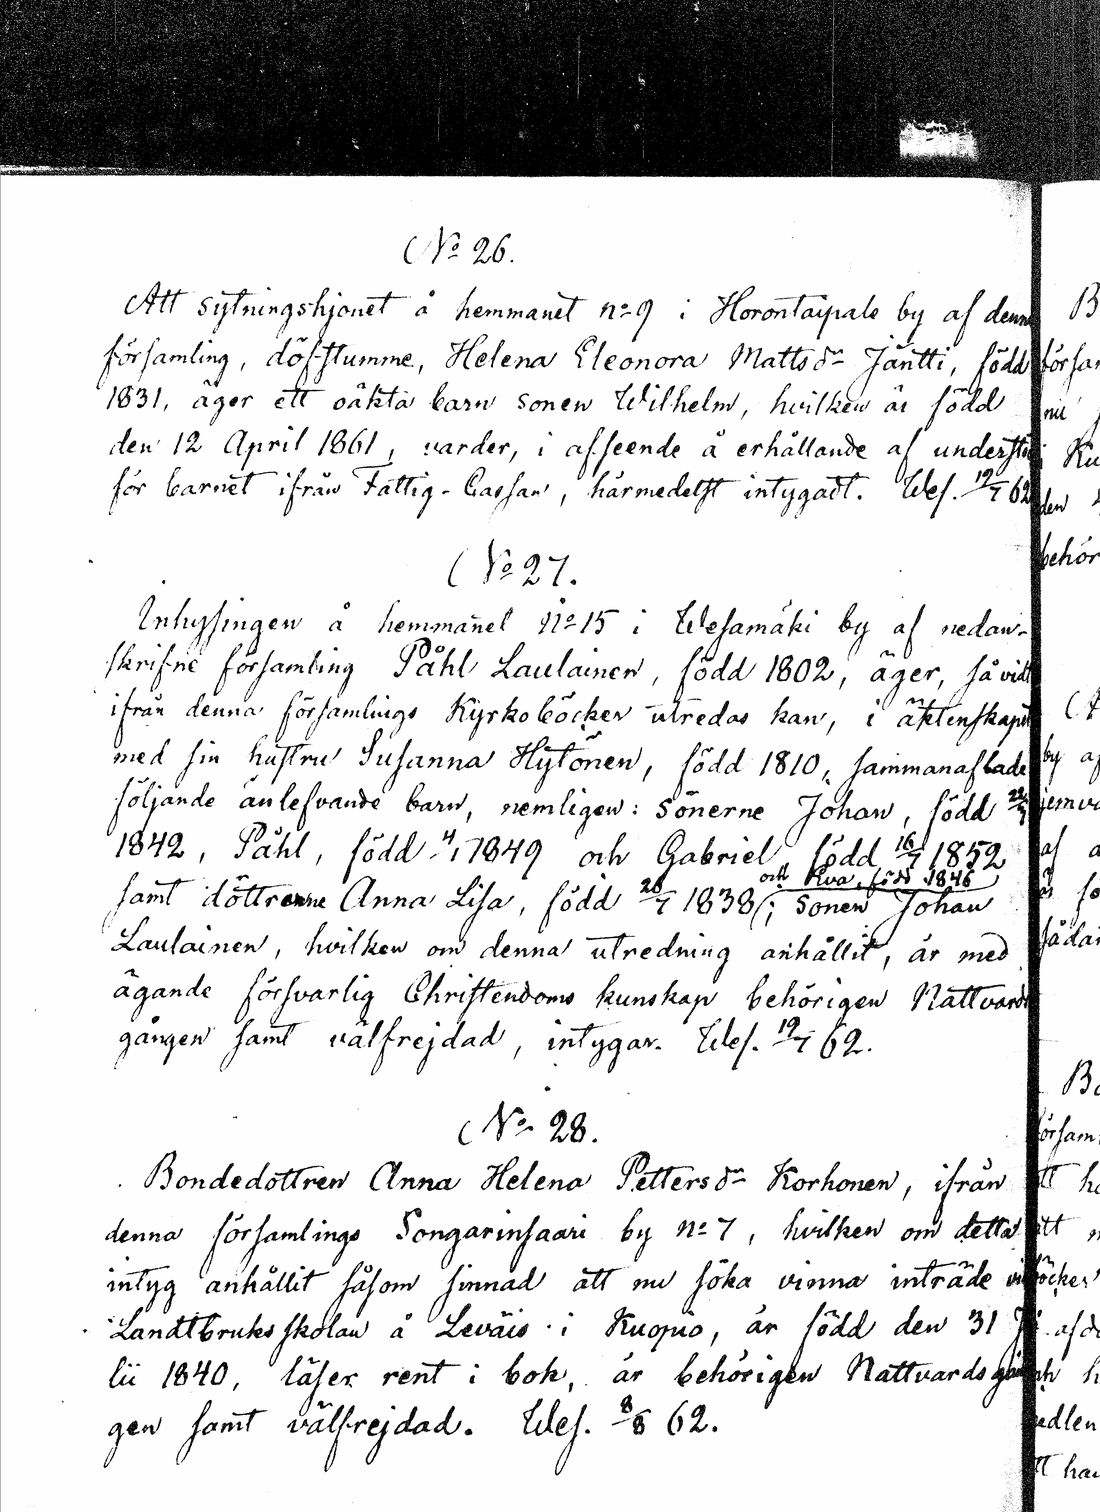 No 26.
Att sytningshjonet å hemmanet no 9 i Horontaipale by af denna
församling, döfstumme, Helena Eleonora Mattsdr Jäntti, född
1831, äger ett oäkta barn sonen Wilhelm, hvilken är född
den 12 April 1861, varder, i afseende å erhållande af understö
för barnet ifrån Fattig-Cassan, härmedelst intygadt. Wes. 19/7 62
No 27.
Inhysingen å hemmanet No 15 i Wesamäki by af nedan-
skrifne församling Påhl Laulainen, född 1802, äger, så vidt
ifrån denna församlings Kyrkoböcker utredas kan, i äktenskapet
med sin hustru Susanna Hytönen, född 1810, sammanaflade
följande ännu lefvande barn, nemligen: sönerne Johan, född
1842, Påhl, född 4/1 1849 och Gabriel, född 16/7 1852
och Eva, född 1846
samt döttrarne Anna Lisa, född 20/7 1838; sonen Johan
Laulainen, hvilken om denna utredning anhållit, är med
ägande försvarlig Christendoms kunskap behörigen Nattvards
gången samt välfrejdad, intygar. Wes. 19/7 62.
No 28.
Bondedottren Anna Helena Pettersdr Korhonen, ifrån
denna församlings Songarinsaari by no 7, hvilken om detta
intyg anhållit såsom sinnad att nu söka vinna inträde vid
Landtbruksskolan å Leväis i Kuopio, är född den 31 Ju
lii 1840, läser rent i bok, är behörigen Nattvardsgån
gen samt välfrejdad. Wes. 8/8 62.